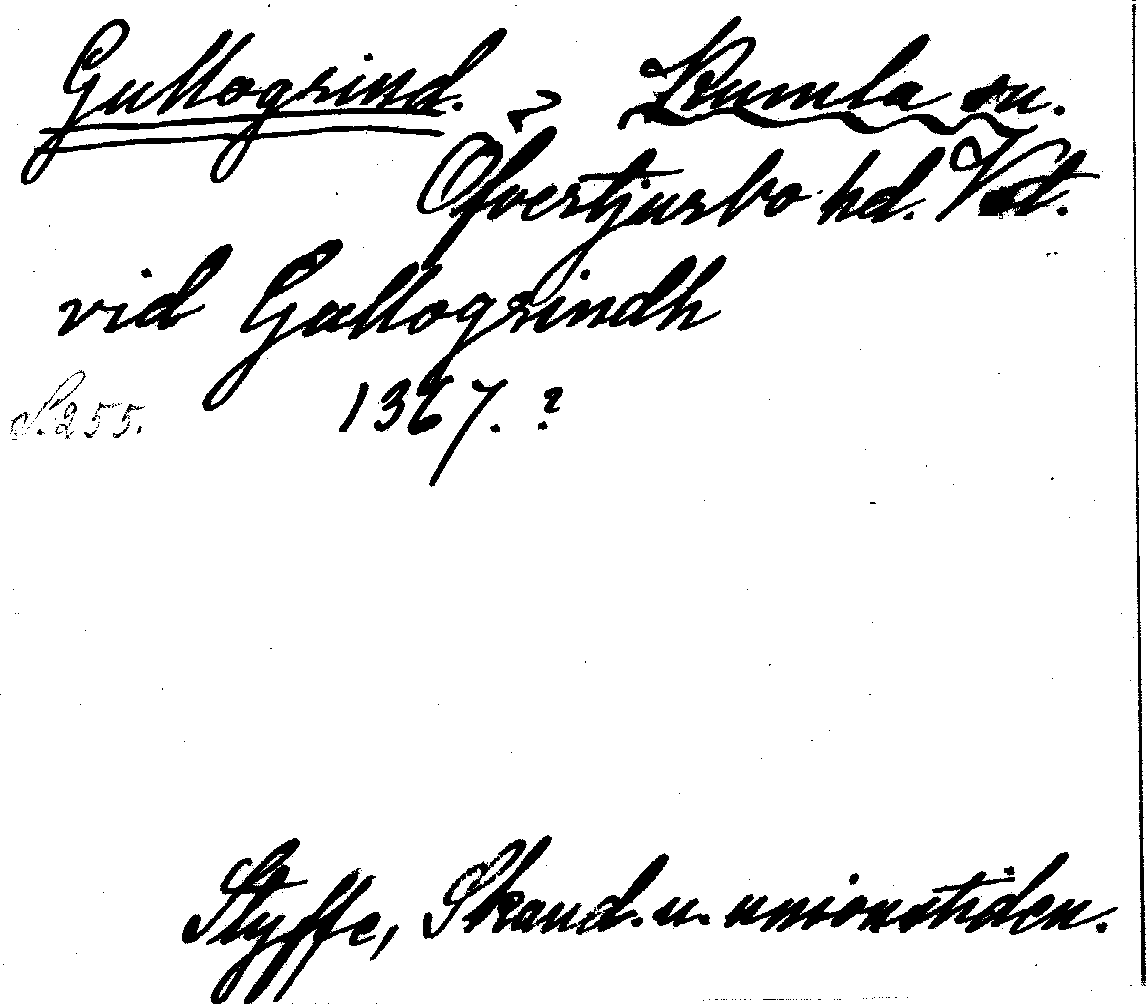 Gullogrind. ? Kumla sn.
Öfvertjurbo hd. Vstl.
vid Gullogrindh
S. 255. 1367. ?
Styffe, Skand. u. unionstiden.